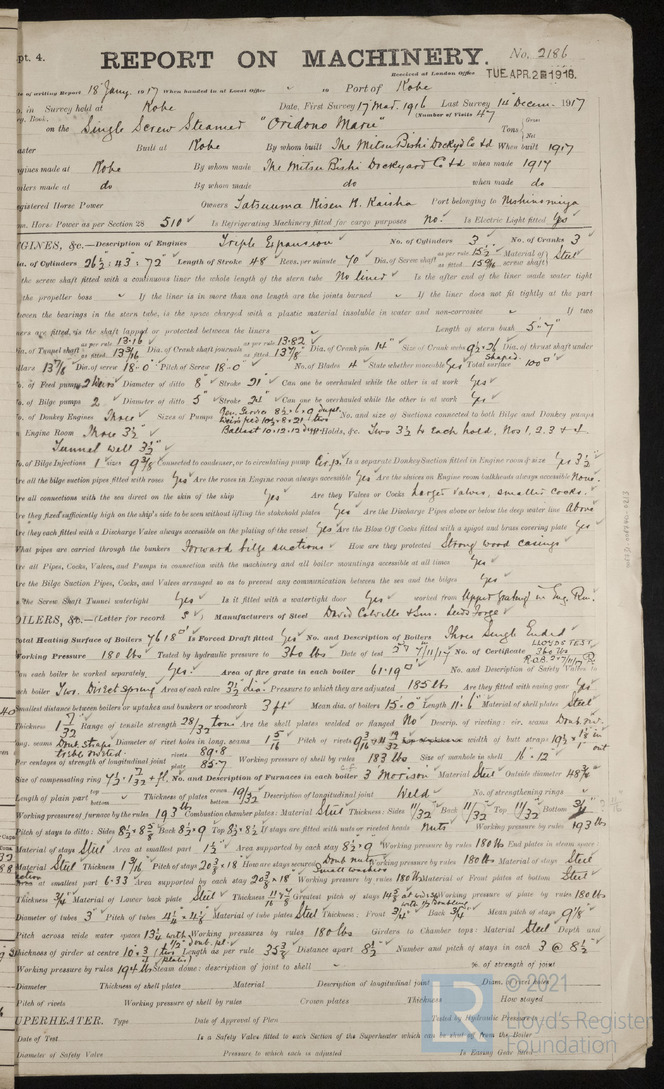 pt. 4.
REPORT ON MACHINERY.
No. 2186
Received at London Office
TUE. APR. 2 1918.
of writing Report 18 Jany. 1917 When handed in at Local Office 10 Port of Kobe
in Survey held at Kobe Date, First Survey 17 Mar. 1916 Last Survey 14 Decem. 1917
(Number of Visits 47
on the Single Screw Steamer "Oridono Maru" Tons Gross Net
Built at Kobe By whom built The Mitsu Bishi Dockyd Co Ltd When built 1917
gines made at Kobe By whom made The Mitsu Bishi Dockyard Co Ltd when made 1917
oilers made at do By whom made do when made do
egistered Horse Power Owners Tatsuuma Kisen K. Kaisha Port belonging to Nishinomiya
om. Horse Power as per Section 28 510 Is Refrigerating Machinery fitted for cargo purposes No. Is Electric Light fitted Yes
GINES, &c.—Description of Engines Triple Expansion No. of Cylinders 3 No. of Cranks 3
ia. of Cylinders 26½ : 43 : 72 Length of Stroke 48 Revs. per minute 70 Dia. of Screw shaft as per rule as fitted Material of screw shaft Steel
the screw shaft fitted with a continuous liner the whole length of the stern tube No liner Is the after end of the liner made water tight
the propeller boss If the liner is in more than one length are the joints burned If the liner does not fit tightly at the part
tween the bearings in the stern tube, is the space charged with a plastic material insoluble in water and non-corrosive If two
ners are fitted, is the shaft lapped or protected between the liners Length of stern bush 5-7"
ia. of Tunnel shaft as per rule 13.16 as fitted Dia. of Crank shaft journals as per rule 13.82 as fitted 13⅞ Dia. of Crank pin 14" Size of Crank webs Dia. of thrust shaft under
ollars 13⅞ Dia. of screw 18-0 Pitch of Screw 18-0 No. of Blades 4 State whether moveable Yes Total surface 100
of Feed pumps 2 Diameter of ditto 8" Stroke 21" Can one be overhauled while the other is at work Yes
o. of Bilge pumps 2 Diameter of ditto 5" Stroke 24" Can one be overhauled while the other is at work Yes
o. of Donkey Engines Three Sizes of Pumps Gen. Service 8½ x 6 x 9 dupl. Ballast 10 x 12 x 12 dup No. and size of Suctions connected to both Bilge and Donkey pumps
Engine Room Three 3½ Holds, &c. Two 3½ to each hold. Nos 1. 2. 3 & 4
Tunnel well 3½"
o. of Bilge Injections 1 sizes 9⅜ Connected to condenser, or to circulating pump Cir.p. Is a separate Donkey Suction fitted in Engine room & size Yes 3½
re all the bilge suction pipes fitted with roses Yes Are the roses in Engine room always accessible Yes Are the sluices on Engine room bulkheads always accessible None.
re all connections with the sea direct on the skin of the ship Yes Are they Valves or Cocks Larger Valves, smaller cocks.
re they fixed sufficiently high on the ship's side to be seen without lifting the stokehold plates Yes Are the Discharge Pipes above or below the deep water line Above
re they each fitted with a Discharge Valve always accessible on the plating of the vessel Yes Are the Blow Off Cocks fitted with a spigot and brass covering plate Yes
What pipes are carried through the bunkers Forward bilge suctions How are they protected Strong wood casings
re all Pipes, Cocks, Valves, and Pumps in connection with the machinery and all boiler mountings accessible at all times Yes
re the Bilge Suction Pipes, Cocks, and Valves arranged so as to prevent any communication between the sea and the bilges Yes
s the Screw Shaft Tunnel watertight Yes Is it fitted with a watertight door Yes worked from Upper grating in Eng. Rm.
OILERS, &c.—(Letter for record S) Manufacturers of Steel David Colville & Sons. Leeds Forge
Total Heating Surface of Boilers 7618 Is Forced Draft fitted Yes No. and Description of Boilers Three Single Ended
Working Pressure 180 lbs Tested by hydraulic pressure to 360 lbs Date of test 7/11/17 No. of Certificate LLOYDS TEST 360 lbs
Can each boiler be worked separately Yes. Area of fire grate in each boiler 61.19 No. and Description of Safety Valves to
each boiler Two. Direct spring Area of each valve 3½ dia. Pressure to which they are adjusted 185 lbs Are they fitted with easing gear Yes
Smallest distance between boilers or uptakes and bunkers or woodwork 3 ft Mean dia. of boilers 15-0 Length 11-6 Material of shell plates Steel
Thickness Range of tensile strength 28/32 tons Are the shell plates welded or flanged No Descrip. of riveting: cir. seams Doub. riv.
long. seams Doub. straps treble riveted. Diameter of rivet holes in long. seams 1 5/16 Pitch of rivets width of butt straps
Per centages of strength of longitudinal joint rivets 89.8 plate 85.7 Working pressure of shell by rules 183 lbs Size of manhole in shell 16 x 12
Size of compensating ring No. and Description of Furnaces in each boiler 3 Morison Material Steel Outside diameter
Length of plain part top bottom Thickness of plates crown bottom 19/32 Description of longitudinal joint Weld No. of strengthening rings
Working pressure of furnace by the rules 193 lbs Combustion chamber plates: Material Steel Thickness: Sides 11/32 Back 11/32 Top 11/32 Bottom 3/4
Pitch of stays to ditto: Sides 8½ x 8⅜ Back 8½ x 9 Top 8½ x 8½ If stays are fitted with nuts or riveted heads Nuts Working pressure by rules 193 lbs
Material of stays Steel Area at smallest part 1½ Area supported by each stay 8½ x 9 Working pressure by rules 180 lbs End plates in steam space
Material Steel Thickness 1 3/16 Pitch of stays 20⅜ x 18 How are stays secured Doub nuts small washers Working pressure by rules 180 lbs Material of stays Steel
Area at smallest part 6.33 Area supported by each stay 20⅜ x 18 Working pressure by rules 180 lbs Material of Front plates at bottom Steel
Thickness 3/4 Material of Lower back plate Steel Thickness Greatest pitch of stays Working pressure of plate by rules 180 lbs
Diameter of tubes 3" Pitch of tubes 4¼ x 4⅛ Material of tube plates Steel Thickness: Front 3/4 Back 3/4 Mean pitch of stays 9⅛
Pitch across wide water spaces Working pressures by rules 180 lbs Girders to Chamber tops: Material Steel Depth and
thickness of girder at centre (two plates) Length as per rule Distance apart 8½ Number and pitch of stays in each 3 @ 8½
Working pressure by rules 194 lbs Steam dome: description of joint to shell % of strength of joint
Diameter Thickness of shell plates Material Description of longitudinal joint Diam. of rivet holes
Pitch of rivets Working pressure of shell by rules Crown plates Thickness How stayed
UPERHEATER. Type Date of Approval of Plan Tested by Hydraulic Pressure to
Date of Test Is a Safety Valve fitted to each Section of the Superheater which can be shut off from the Boiler
Diameter of Safety Valve Pressure to which each is adjusted Is Easing Gear fitted
© 2021
LR
Lloyd's Register
Foundation